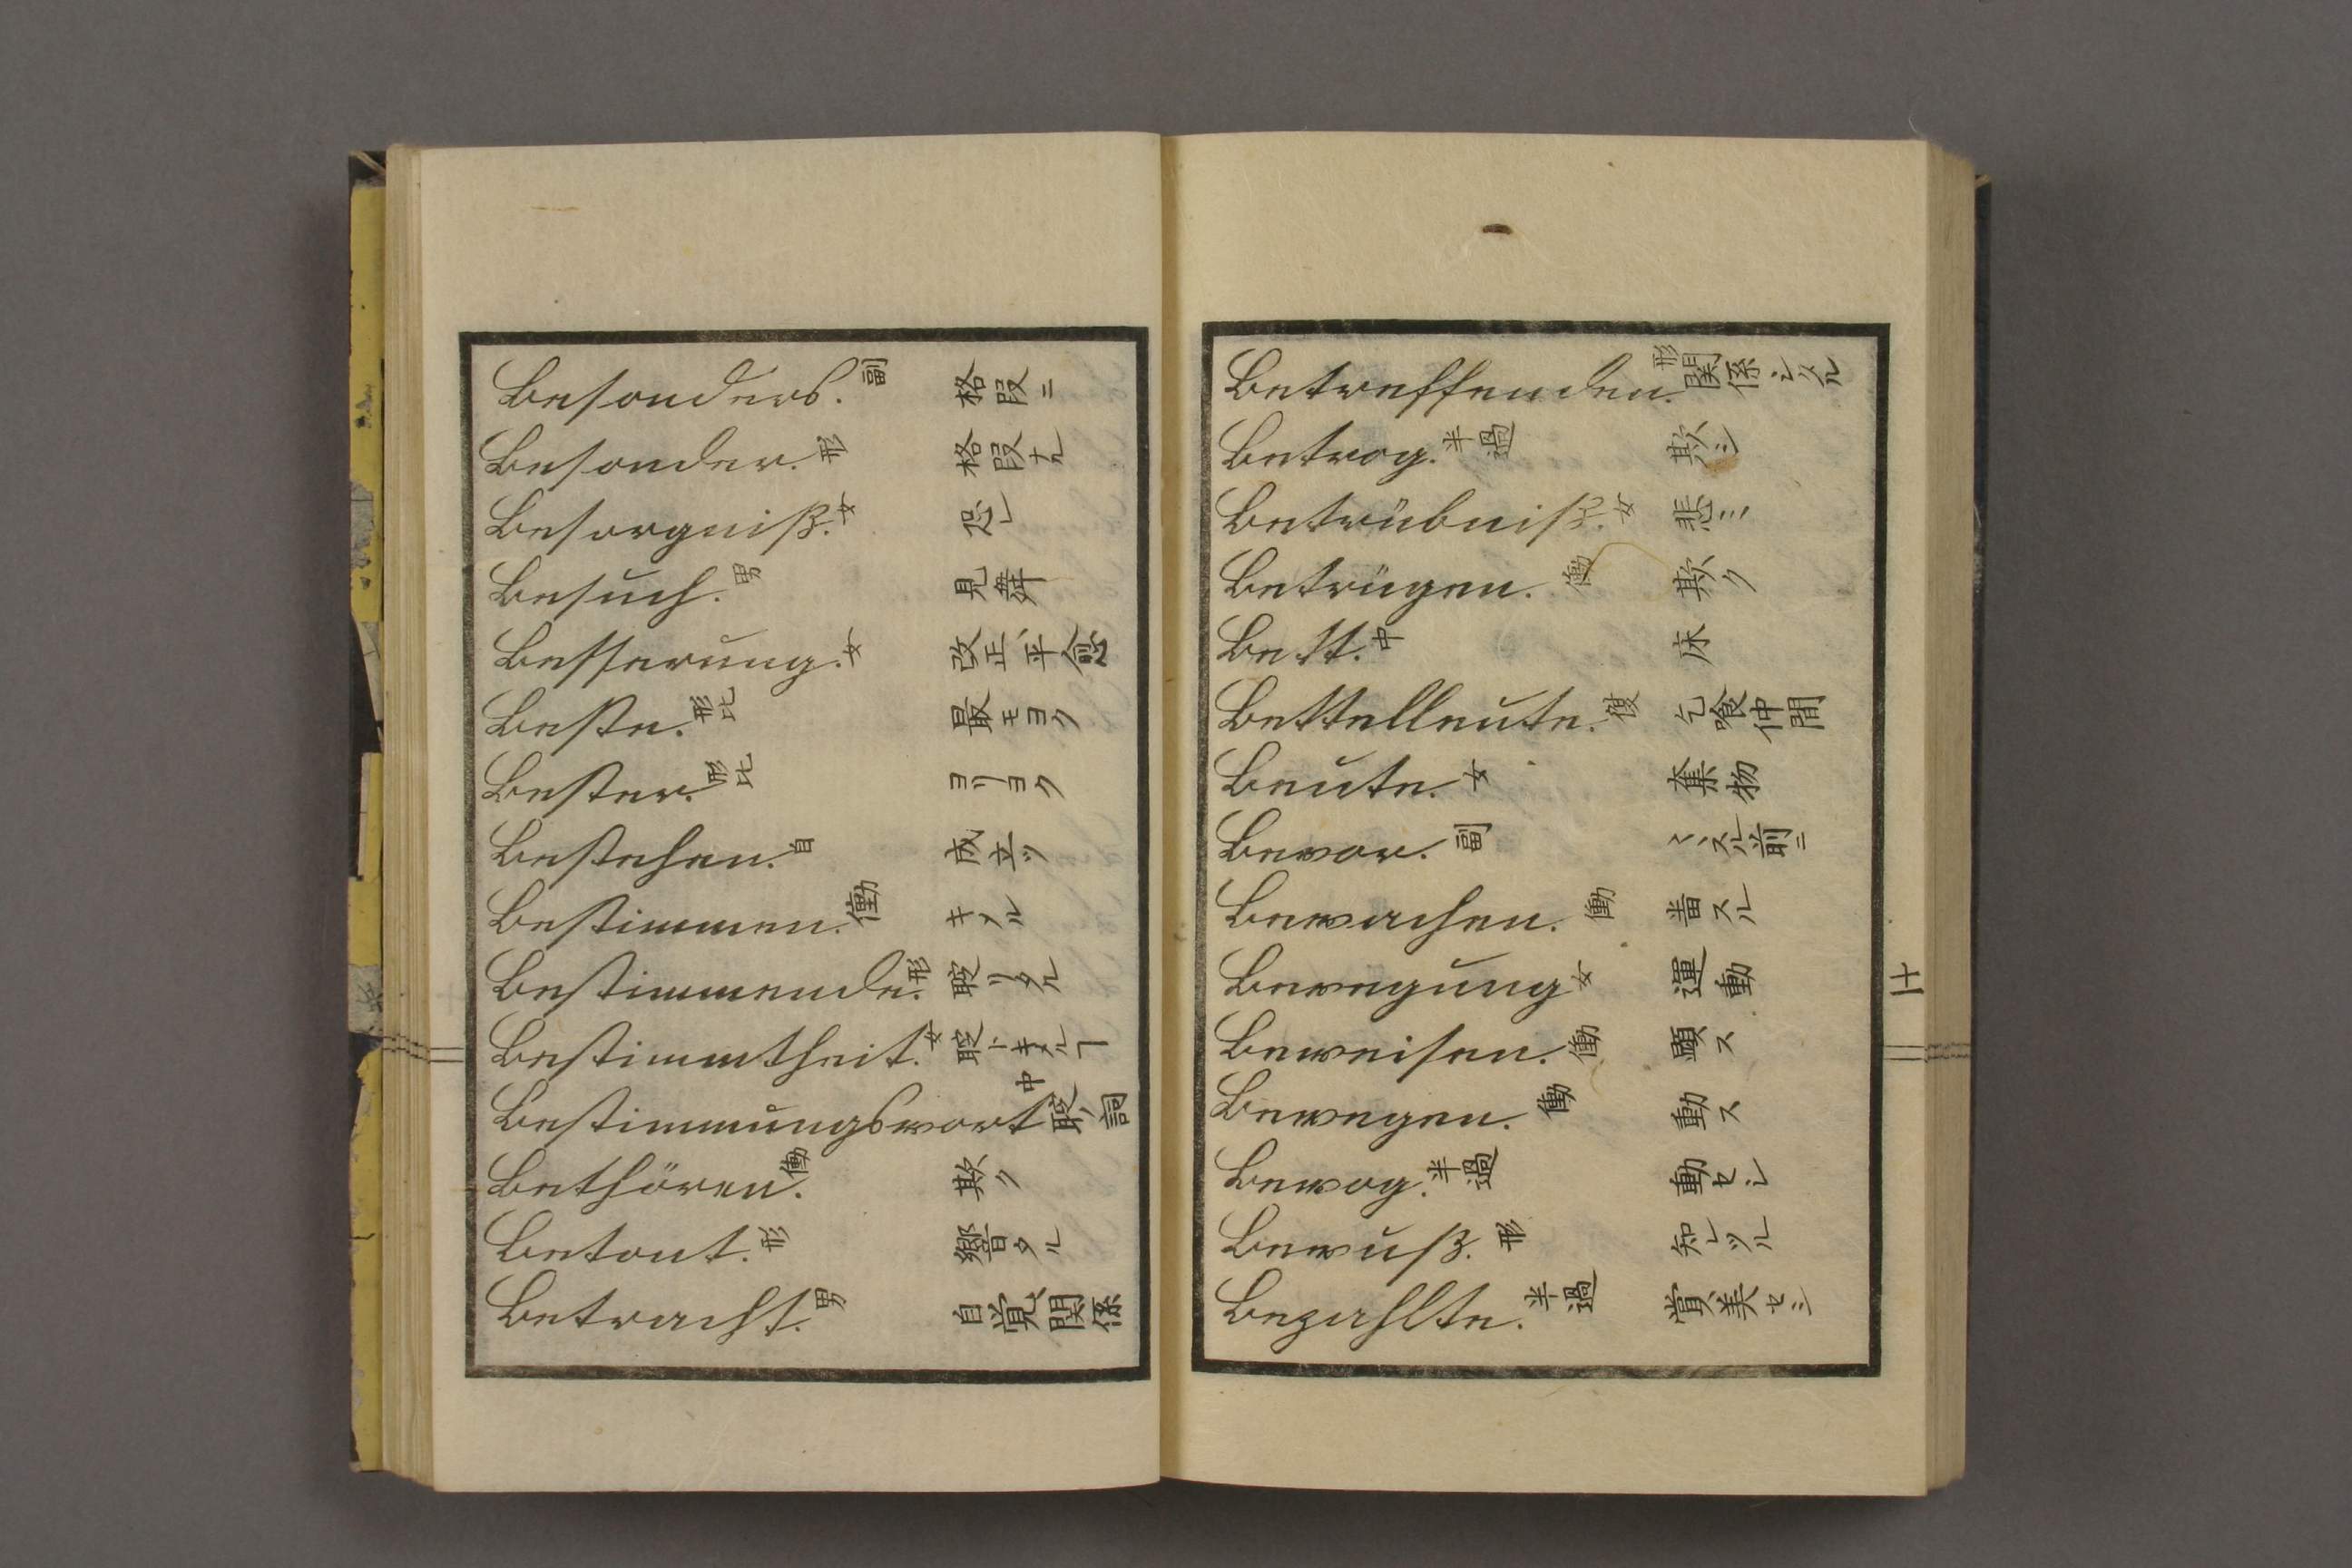 Besonders. 副 格段ニ
Besonder. 形 格段ナル
Besorgniß. 女 恐レ
Besuch. 男 見舞
Besserung. 女 改正、平愈
Beste. 形比 最モヨク
Bester. 形比 ヨリヨク
Bestehen. 自 成立ツ
Bestimmen. 働 キメル
Bestimmende. 形
Bestimmtheit. 女
Bestimmungswort 中 詞
Bethören. 働 欺ク
Betont. 形 響タル
Betracht. 男 自覚、関係
Betreffenden. 形 関係シタル
Betrog. 半過 欺シ
Betrübniß. 女 悲ミ
Betrügen. 働 欺ク
Bett. 中 床
Bettelleute. 復 乞喰仲間
Beute. 女 物
Bevor. 副 スル前ニ
Bewachen. 働 番スル
Bewegung 女 運動
Beweisen. 働 顕ス
Bewegen. 働 動ス
Bewog. 半過 動セシ
Bewuß. 形 知レツル
Bezahlte. 半過 賞美セシ
十一